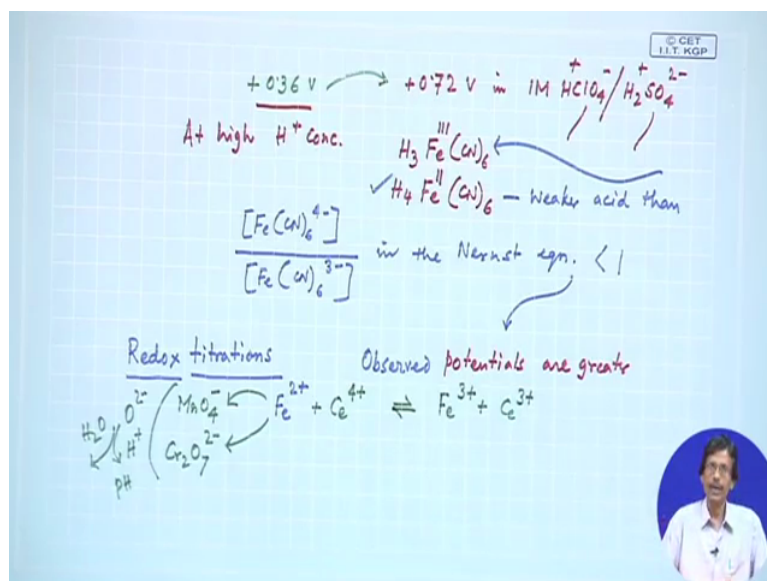 © CET
I.I.T. KGP
+0.36 V → +0.72 V in 1M HClO4⁻ / H2SO4²⁻
+ +
At high H⁺ conc.
H3 Feᴵᴵᴵ(CN)6
✓H4 Feᴵᴵ(CN)6 – Weaker acid than
[Fe(CN)6⁴⁻]
[Fe(CN)6³⁻]
in the Nernst eqn. < 1
Redox titrations
Observed potentials are greater
MnO4⁻ Fe²⁺ + Ce⁴⁺ ⇌ Fe³⁺ + Ce³⁺
H2O O²⁻
H⁺ Cr2O7²⁻
pH